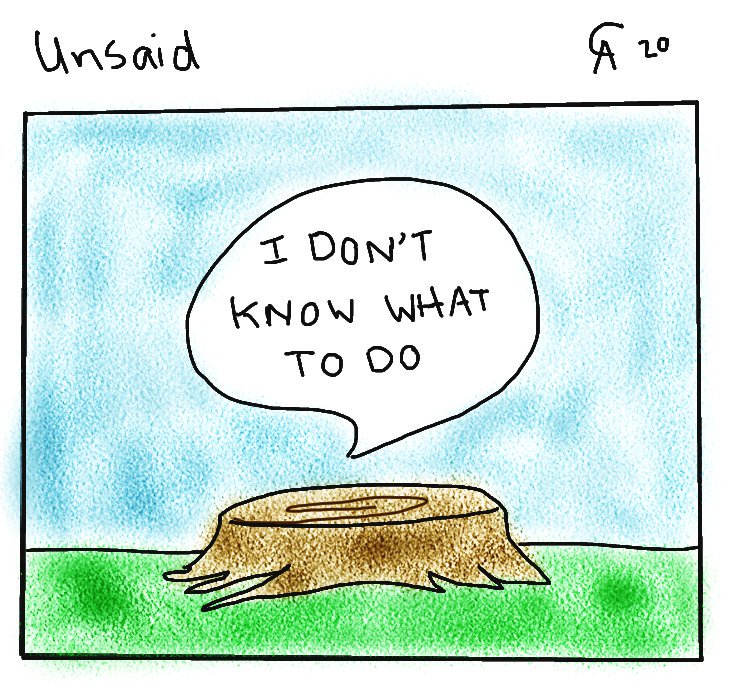 Unsaid
CA 20
I DON'T
KNOW WHAT
TO DO